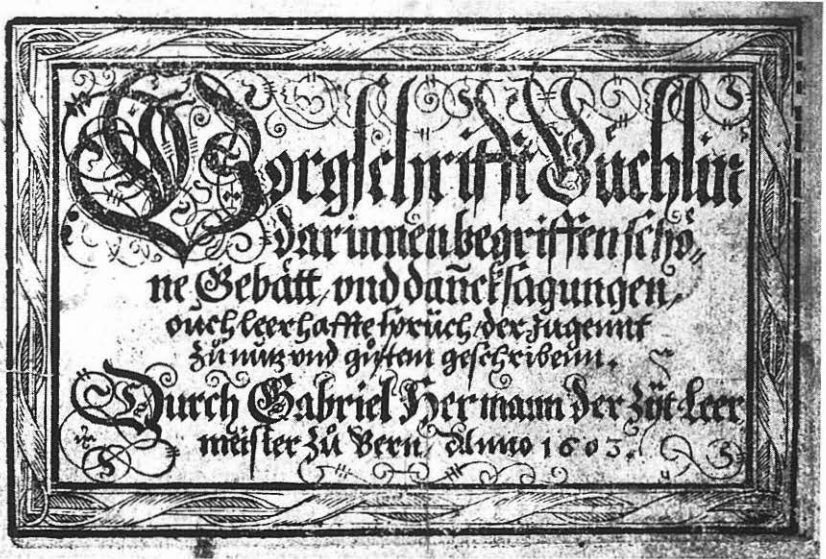 Vorgschrifft Büchlin
darinnen begriffen schö„
ne Gebätt, vnd dañcksagungen,
ouch leerhaffte sprüch, der Jugennt
zů nutz vnd gůtem geschribenn.
Durch Gabriel Hermann der Zÿt Leer
meister Zů Bern, Anno 1603.